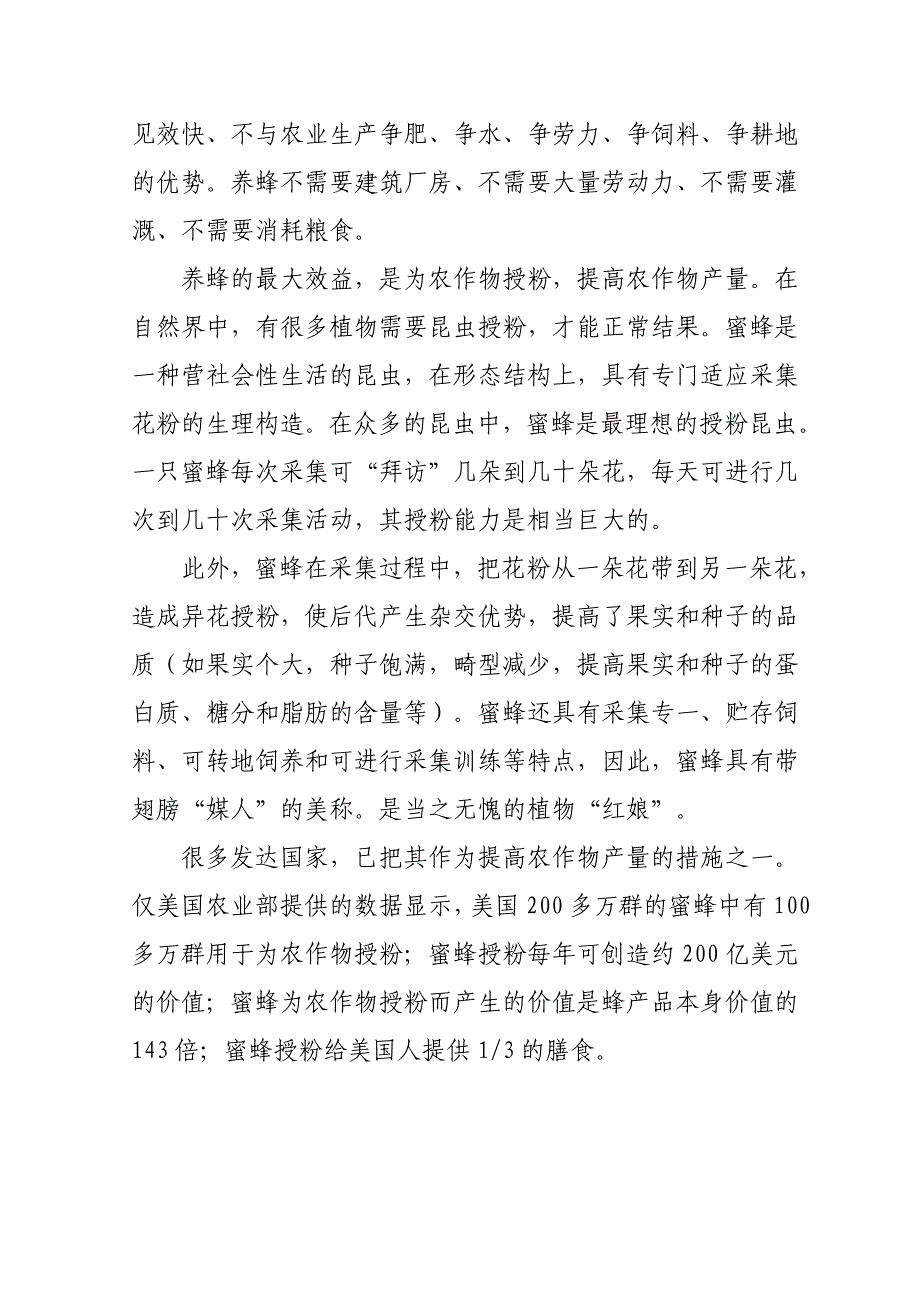 见效快、不与农业生产争肥、争水、争劳力、争饲料、争耕地
的优势。养蜂不需要建筑厂房、不需要大量劳动力、不需要灌
溉、不需要消耗粮食。
养蜂的最大效益，是为农作物授粉，提高农作物产量。在
自然界中，有很多植物需要昆虫授粉，才能正常结果。蜜蜂是
一种营社会性生活的昆虫，在形态结构上，具有专门适应采集
花粉的生理构造。在众多的昆虫中，蜜蜂是最理想的授粉昆虫。
一只蜜蜂每次采集可“拜访”几朵到几十朵花，每天可进行几
次到几十次采集活动，其授粉能力是相当巨大的。
此外，蜜蜂在采集过程中，把花粉从一朵花带到另一朵花，
造成异花授粉，使后代产生杂交优势，提高了果实和种子的品
质（如果实个大，种子饱满，畸型减少，提高果实和种子的蛋
白质、糖分和脂肪的含量等）。蜜蜂还具有采集专一、贮存饲
料、可转地饲养和可进行采集训练等特点，因此，蜜蜂具有带
翅膀“媒人”的美称。是当之无愧的植物“红娘”。
很多发达国家，已把其作为提高农作物产量的措施之一。
仅美国农业部提供的数据显示，美国 200 多万群的蜜蜂中有 100
多万群用于为农作物授粉；蜜蜂授粉每年可创造约 200 亿美元
的价值；蜜蜂为农作物授粉而产生的价值是蜂产品本身价值的
143 倍；蜜蜂授粉给美国人提供 1/3 的膳食。